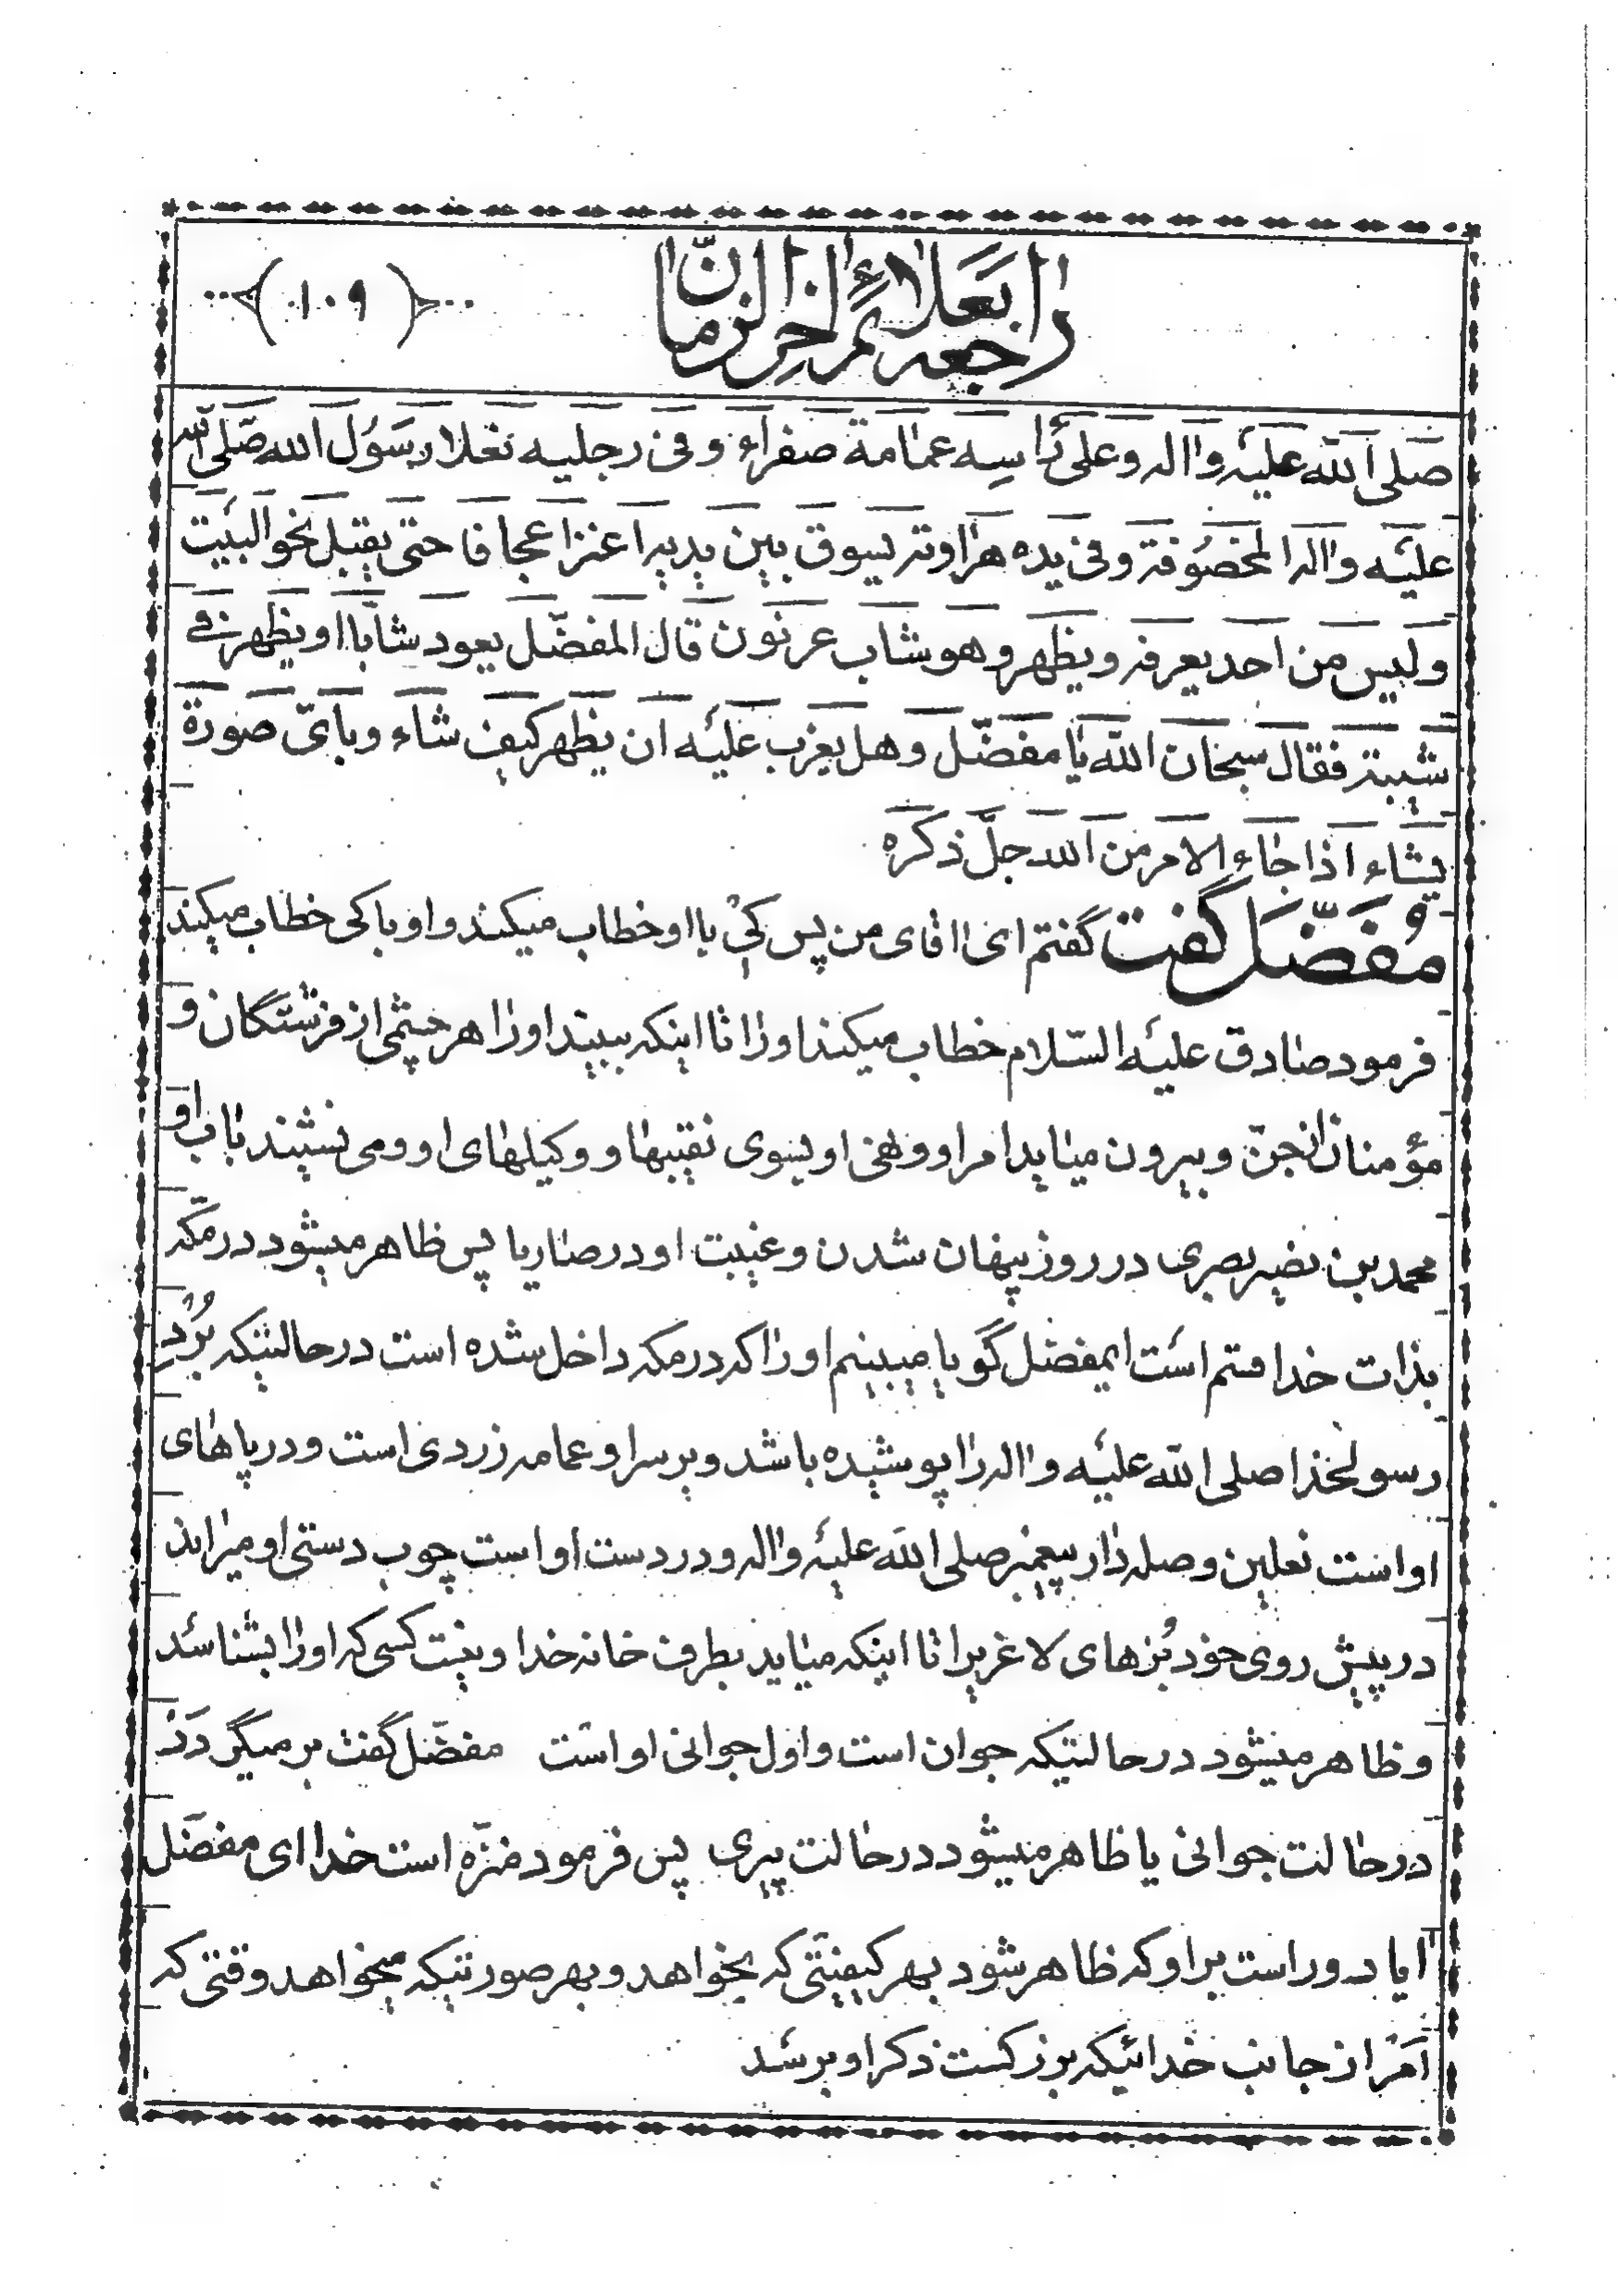 راجعه بعلائم اخر الزمان
(۱۰۹)
صلی الله علیه واله وعلی راسه عمامة صفراء وفی رجلیه نعلا رسول الله صلی الله
علیه واله المخصوفة وفی یده هراوته یسوق بین یدیه اعنزا عجافا حتی یقبل نحو البیت
ولیس من احد یعرفه ویظهر وهو شاب عرنون قال المفضّل یعود شابّا او یظهر فی
شیبته فقال سبحان الله یا مفضّل وهل یعزب علیه ان یظهر کیف شاء وبایّ صورة
یشاء اذا جاء الامر من الله جلّ ذکره
مُفَضَّل گفت گفتم ای اقای من پس کی با او خطاب میکند و او با کی خطاب میکند
فرمود صادق علیه السّلام خطاب میکند او را تا اینکه ببیند او را هر چشمی از فرشتگان و
مؤمنان از جنّ و بیرون میاید امر او و نهی او بسوی نقیبها و وکیلهای او و می نشیند باب او
محمد بن نضیر بصری در روز پنهان شدن و غیبت او در صاریا پس ظاهر میشود در مکّه
بذات خدا قسم است ایمفضل گویا میبینم او را که در مکه داخل شده است در حالتیکه بُرد
رسولخدا صلی الله علیه واله را پوشیده باشد و بر سر او عمامه زردی است و در پاهای
او است نعلین وصله دار پیغمبر صلی الله علیه واله و در دست او است چوب دستی او میراند
در پیش روی خود بُزهای لاغری را تا اینکه میاید بطرف خانه خدا و نیست کسی که او را بشناسد
و ظاهر میشود در حالتیکه جوان است و اول جوانی او است مفضّل گفت بر میگردد
در حالت جوانی یا ظاهر میشود در حالت پیری پس فرمود منزّه است خدا ای مفضّل
آیا دور است بر او که ظاهر شود بهر کیفیّتی که بخواهد و بهر صورتیکه میخواهد وقتی که
امر از جانب خدائیکه بزرکست ذکر او برسد